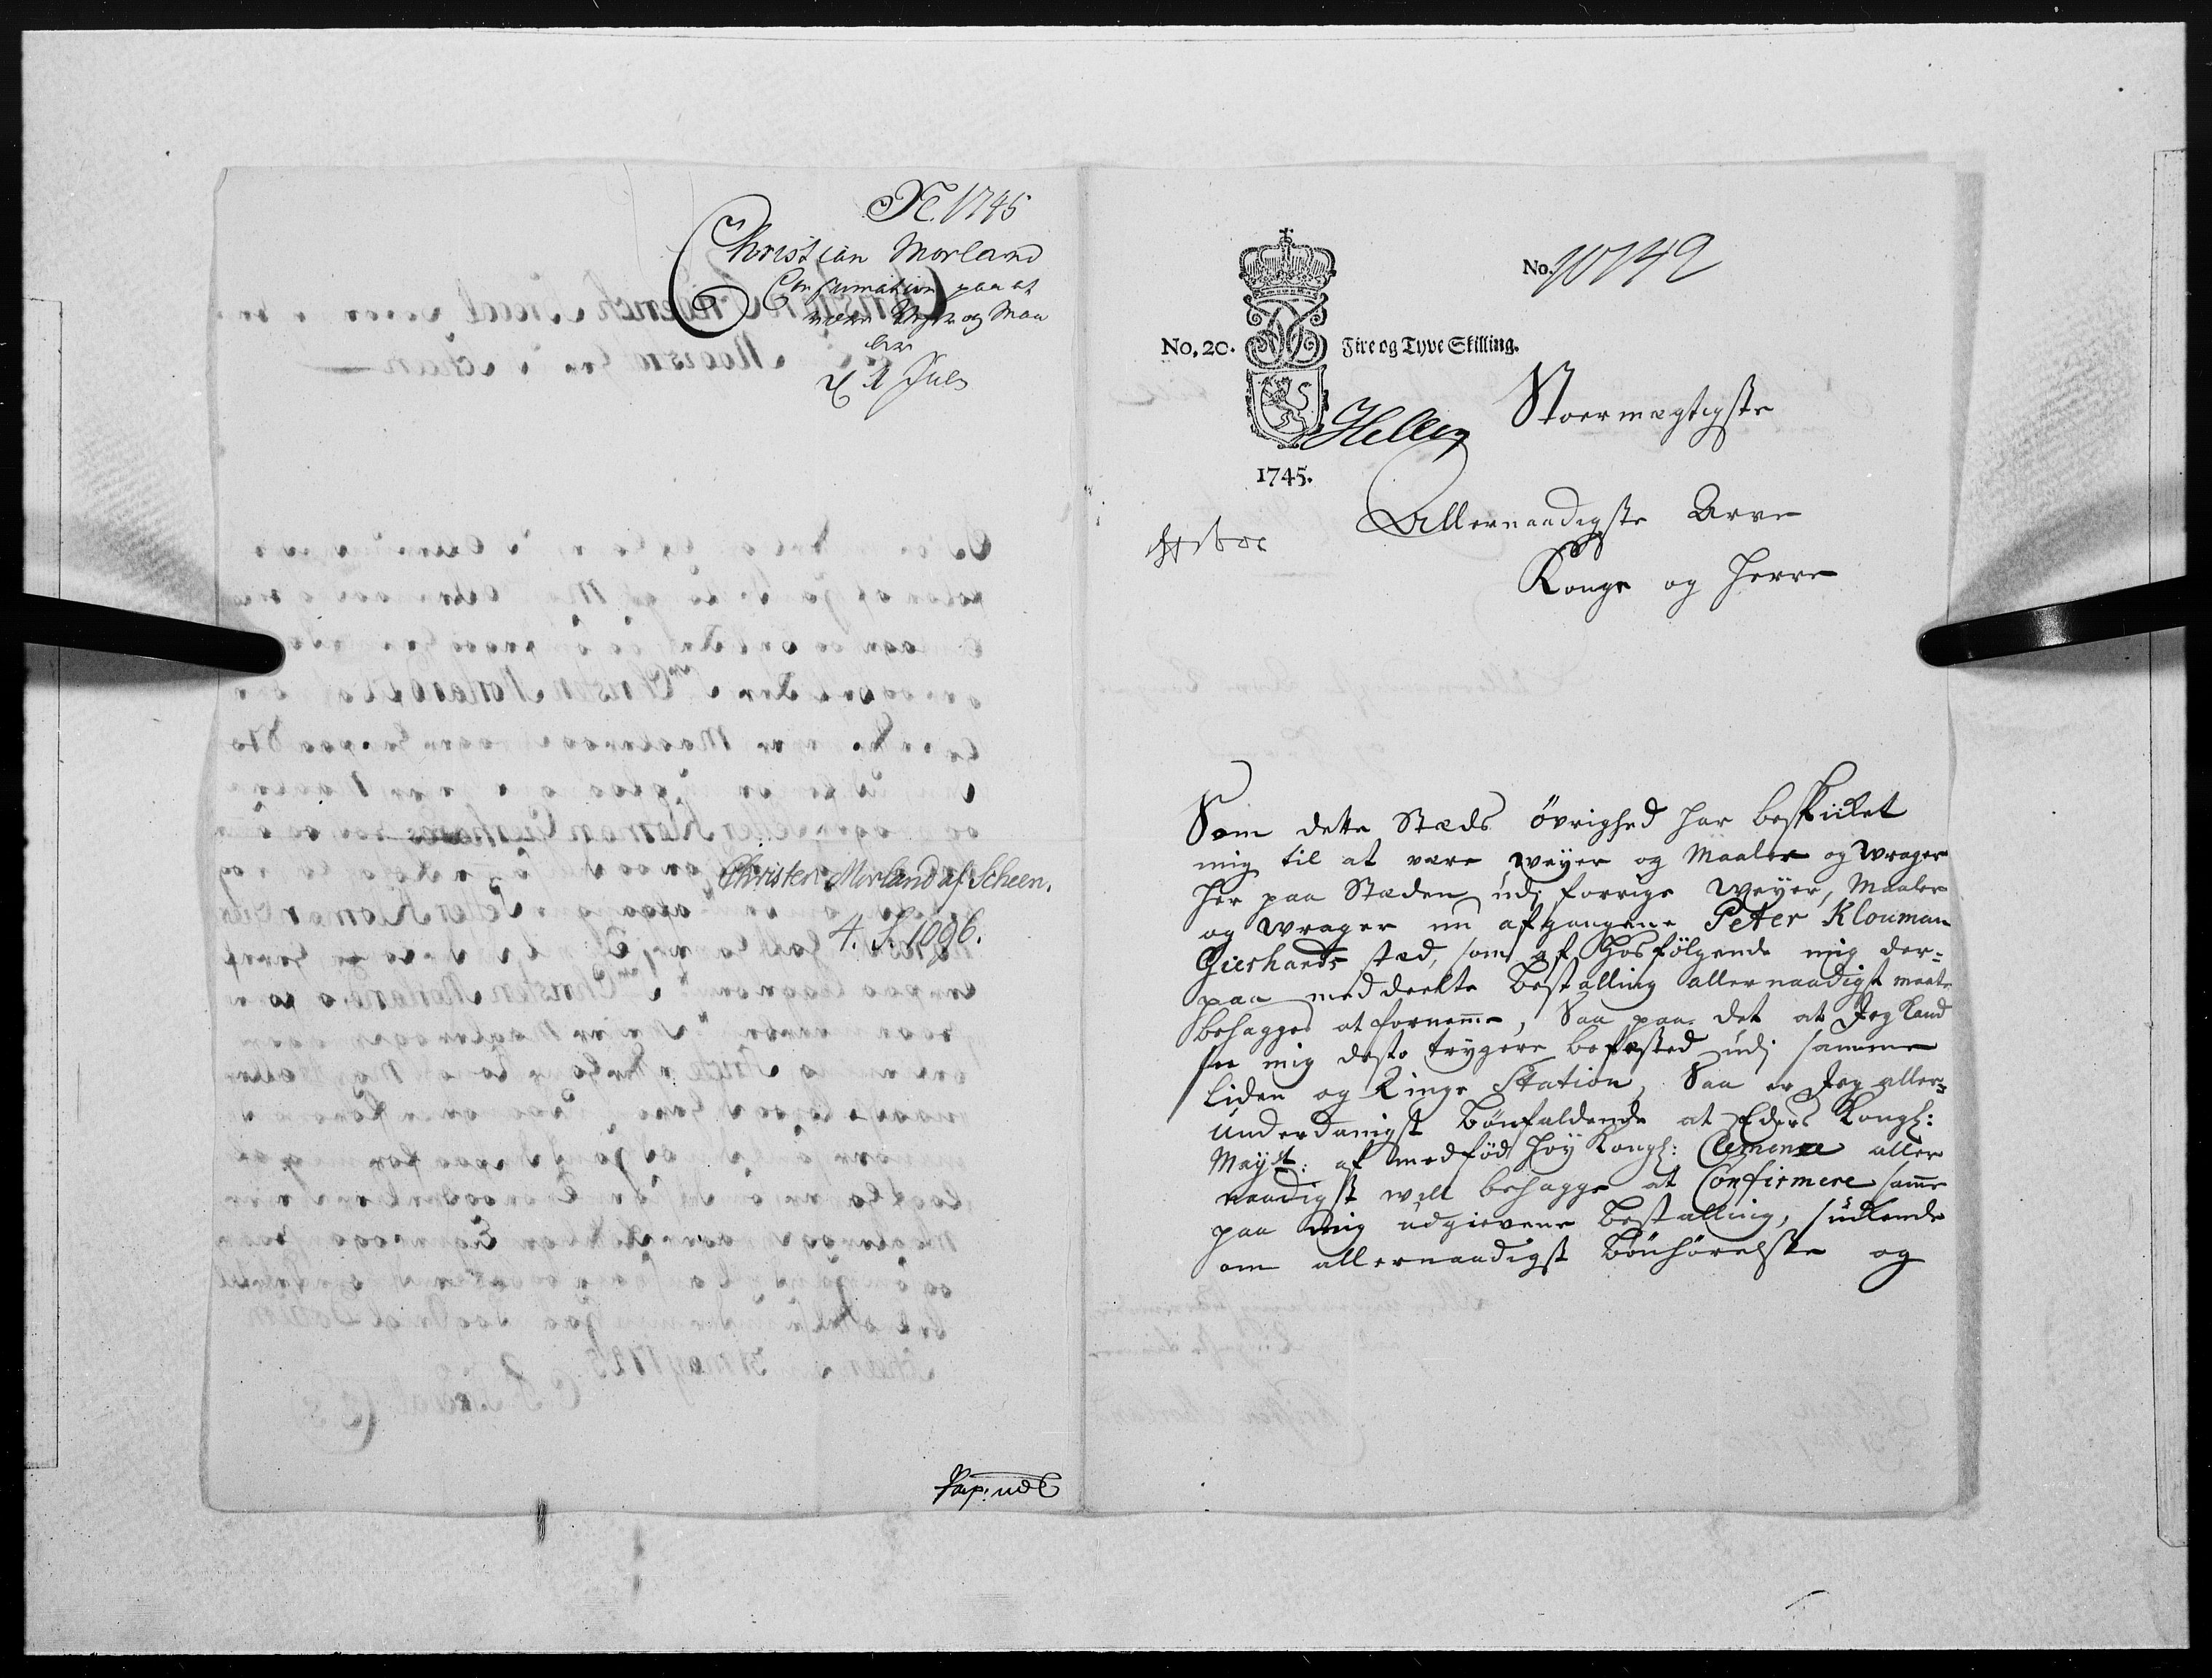 1745
Christian Morland
Confirmation paa at
være Veyer og Maa
ler
d 2 July
Christen Morland af Scheen.
4. S. 1096.
No. 10742
No. 20. Fire og Tyve Skilling.
1745.
Stoermægtigste
Allernaadigste Arve
Konge og Herre
Som dette Stæds övrighed har beskicket
mig til at være Weyer og Maaler og Wrager
her paa Stæden udj forrige Weyer, Maaler
og Wrager nu afgangene Peter Klouman
Gierhards stæd, som af hosfölgende mig der=
paa meddeelte bestalling allernaadigst maatte
behages at fornemme, Saa paa det at Jeg kand
see mig desto trygere befæsted udj samme
liden og Ringe Station, Saa er Jeg aller=
Underdanigst bönfaldende at Eders Kongl:
Mayst: af medföd höy Kongl: Clemence aller
naadigst will behage at Confirmere samme
paa mig udgivene bestalling, suckende
om allernaadigst bönhörelse og